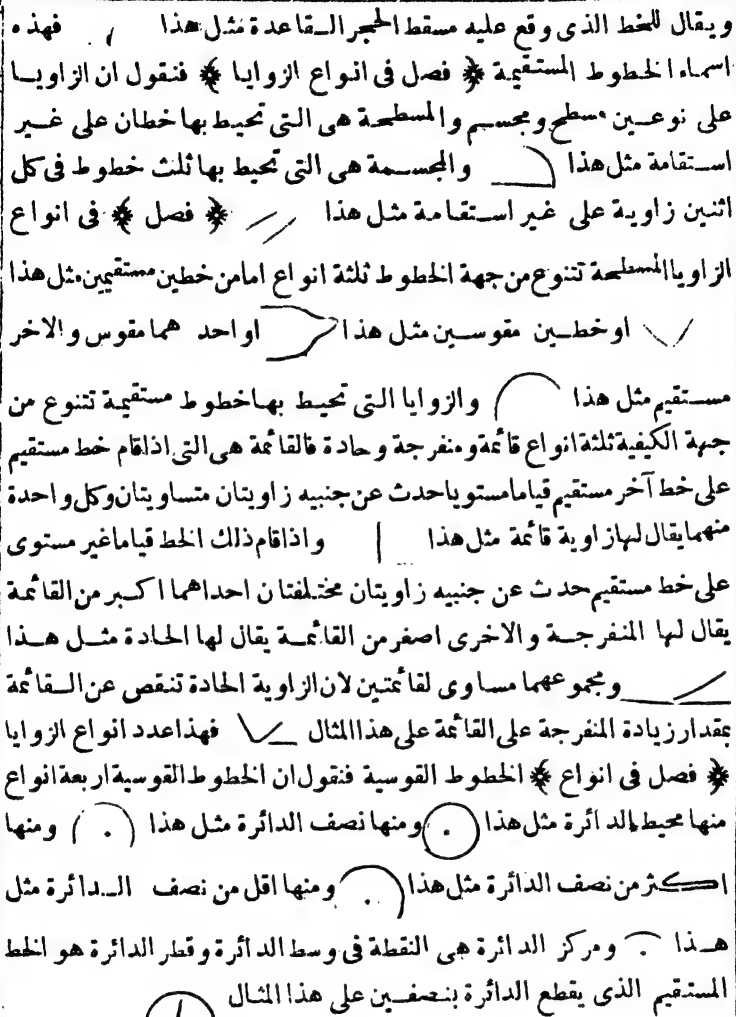 ويقال للخط الذى وقع عليه مسقط الحجر القاعدة مثل هذا فهذه
اسماء الخطوط المستقيمة ﴿ فصل فى انواع الزوايا ﴾ فنقول ان الزاويا
على نوعين مسطح ومجسم والمسطحة هى التى تحيط بها خطان على غير
استقامة مثل هذا والمجسمة هى التى تحيط بها ثلث خطوط فى كل
اثنين زاوية على غير استقامة مثل هذا ﴿ فصل ﴾ فى انواع
الزاويا المسطحة تتنوع من جهة الخطوط ثلثة انواع اما من خطين مستقيمين مثل هذا
او خطين مقوسين مثل هذا او احد هما مقوس والاخر
مستقيم مثل هذا والزوايا التى تحيط بها خطوط مستقيمة تتنوع من
جهة الكيفية ثلثة انواع قائمة ومنفرجة وحادة فالقائمة هى التى اذا قام خط مستقيم
على خط آخر مستقيم قياما مستويا حدث عن جنبيه زاويتان متساويتان وكل واحدة
منهما يقال لها زاوية قائمة مثل هذا واذا قام ذلك الخط قياما غير مستوى
على خط مستقيم حدث عن جنبيه زاويتان مختلفتان احداهما اكبر من القائمة
يقال لها المنفرجة والاخرى اصغر من القائمة يقال لها الحادة مثل هذا
ومجموعهما مساوى لقائمتين لان الزاوية الحادة تنقص عن القائمة
بمقدار زيادة المنفرجة على القائمة على هذا المثال فهذا عدد انواع الزوايا
﴿ فصل فى انواع ﴾ الخطوط القوسية فنقول ان الخطوط القوسية اربعة انواع
منها محيط الدائرة مثل هذا ومنها نصف الدائرة مثل هذا ومنها
اكثر من نصف الدائرة مثل هذا ومنها اقل من نصف الدائرة مثل
هذا ومركز الدائرة هى النقطة فى وسط الدائرة وقطر الدائرة هو الخط
المستقيم الذى يقطع الدائرة بنصفين على هذا المثال